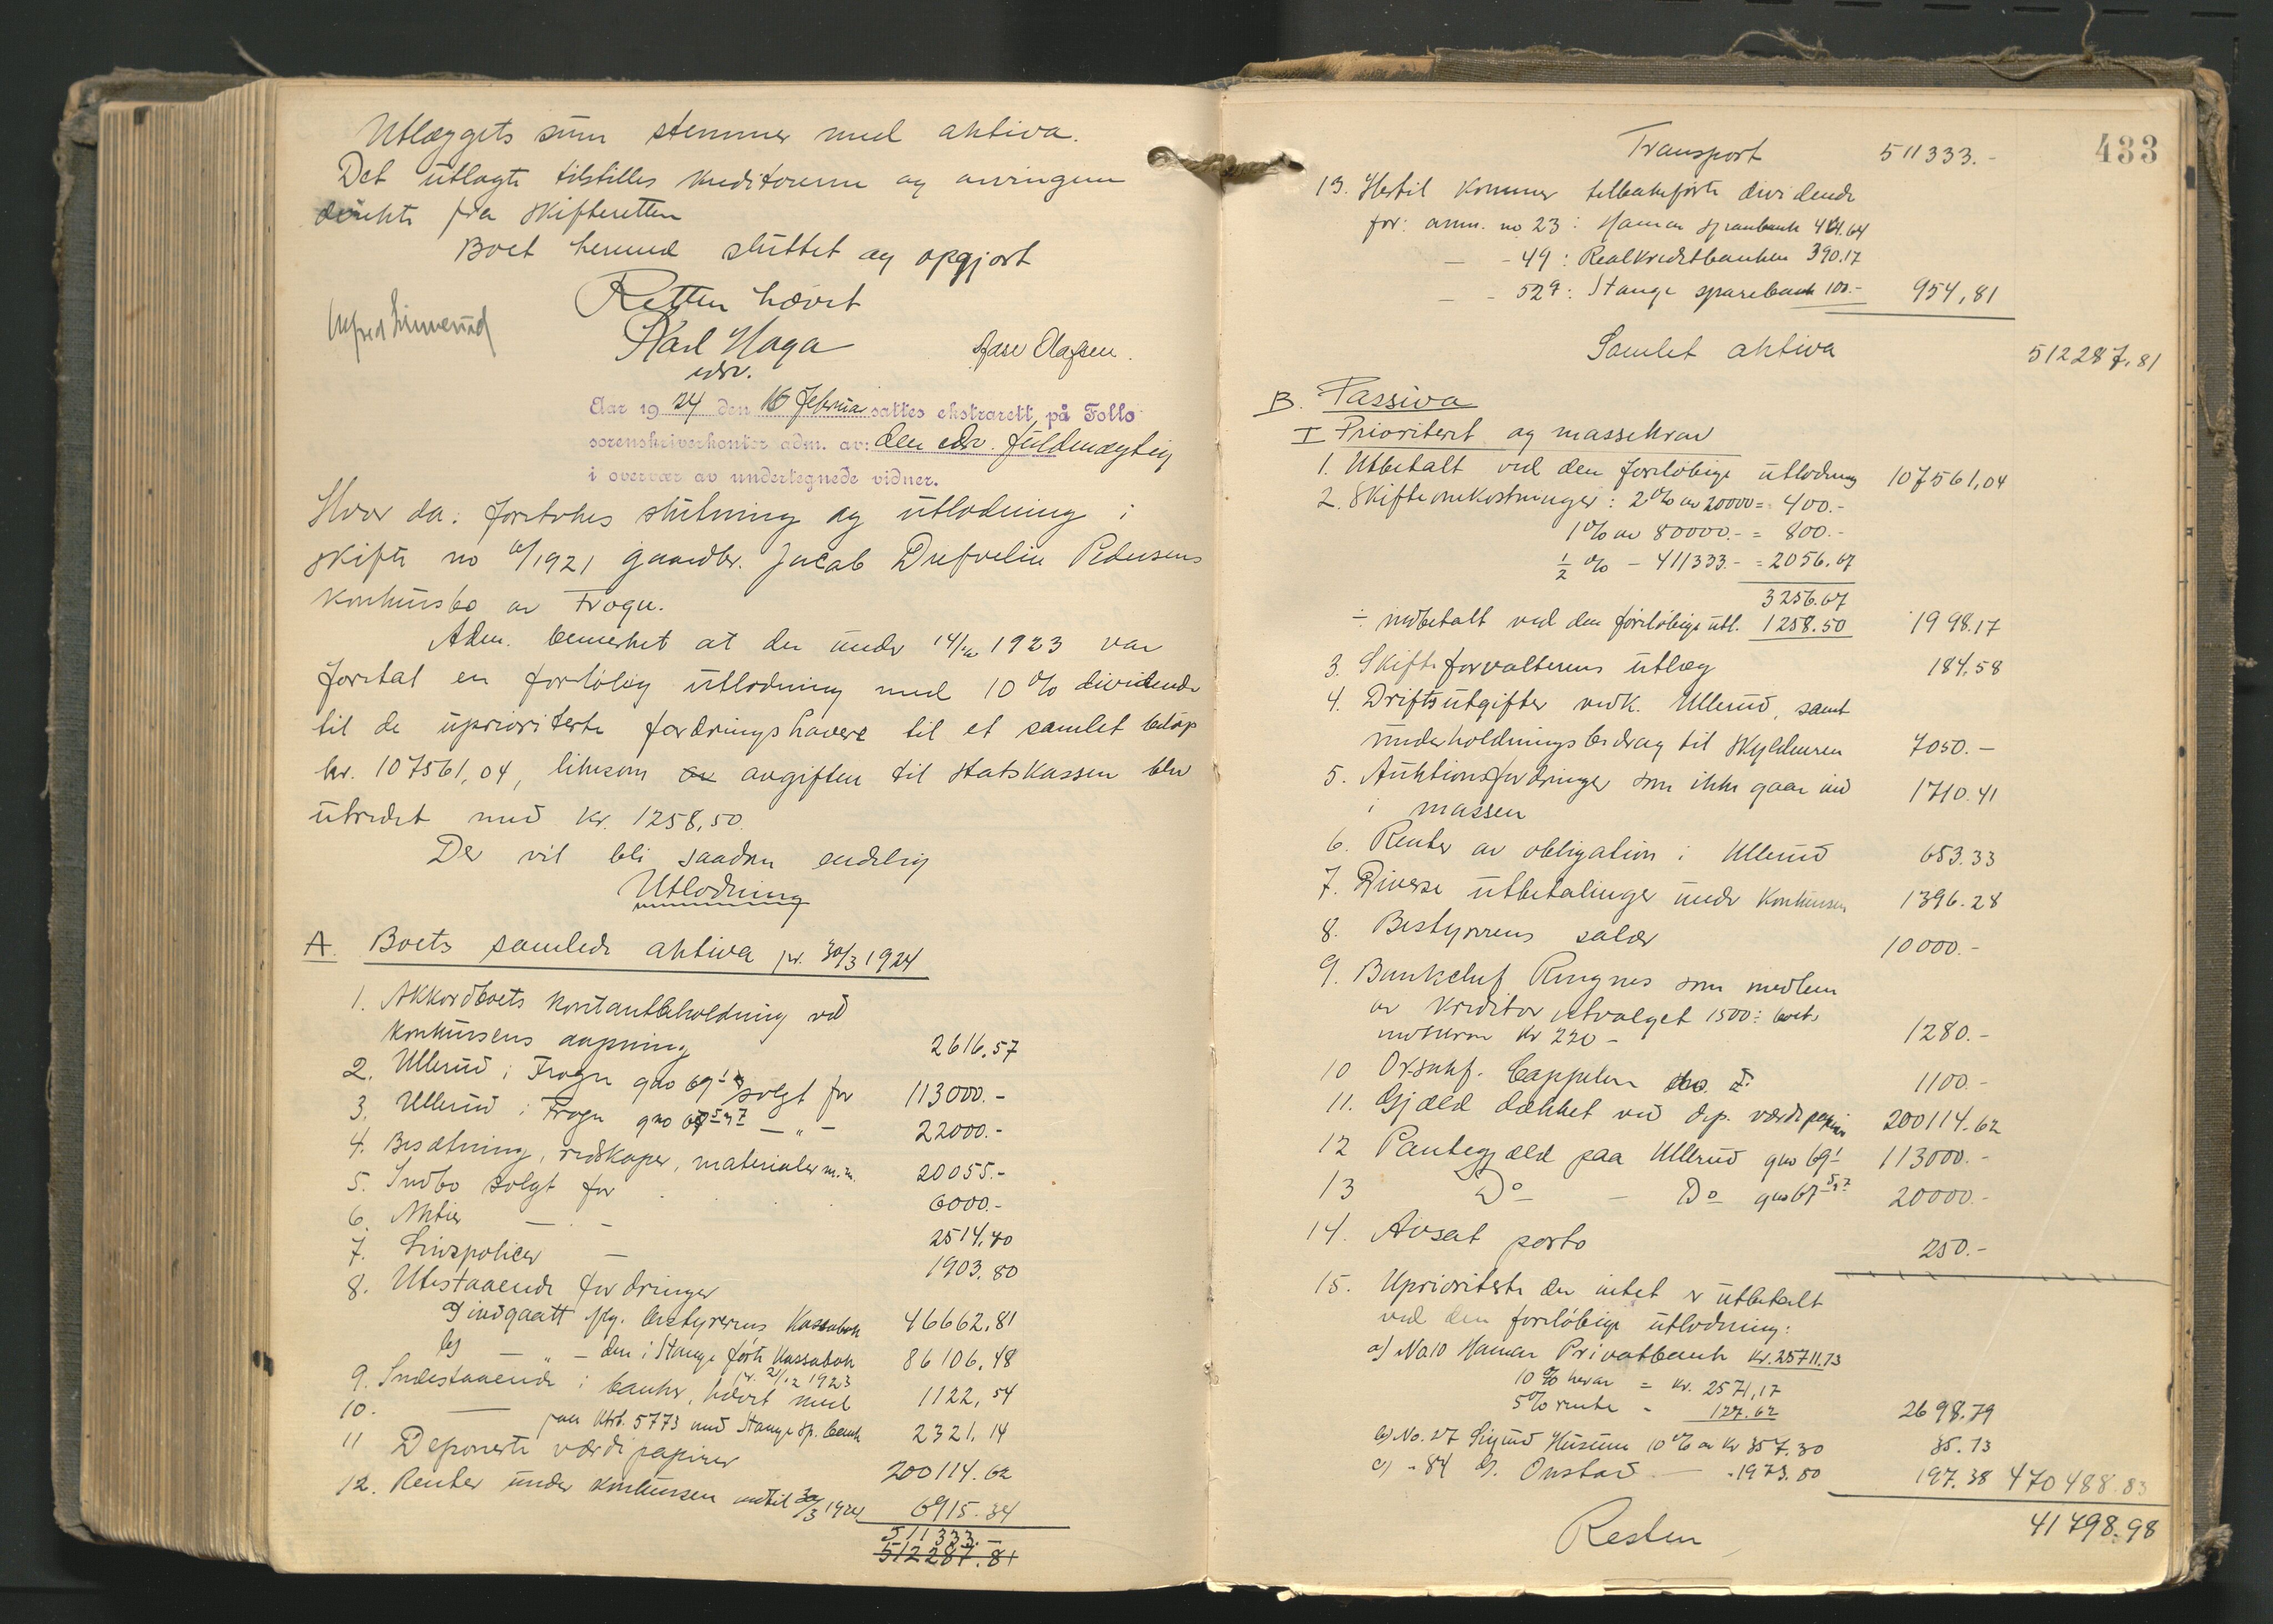 Utlæggets sum stemmer med aktiva.
Det utlagte tilstilles kreditorerne og arvingerne
direkte fra skifteretten
Boet hermed sluttet og opgjort
Retten hævet
Karl Haga
edsv.
Aase Olafsen.
Aar 1924 den 16 februar sattes ekstrarett på Follo
sorenskriverkontor adm. av: den edsv. fuldmægtig
i overvær av undertegnede vidner.
Hvor da: foretokes slutning og utlodning i
skifte no 6/1921 gaardbr. Jacob Drefvelin Pedersens
konkursbo av Frogn.
Adm. bemerket at der under 14/12 1923 var
foretat en foreløbig utlodning med 10 % dividende
til de uprioriterte fordringshavere til et samlet beløp
kr. 107561,04, likesom avgiften til statskassen blev
utredet med kr. 1258,50.
Der vil bli saadan endelig
Utlodning
A. Boets samlede aktiva pr. 30/3 1924
1. Akkordboets kontantbeholdning ved
konkursens aapning 2616,57
2. Ullerud i Frogn gno 69¹ solgt for 113000.-
3. Ullerud i Frogn gno 67 5 & 7 — " — 22000.-
4. Besætning, redskaper, materialer m.m. 20055.-
5. Indbo solgt for 6000.-
6. Aktier — - — 2514,40
7. Livspolicer — 1903,80
8. Utestaaende fordringer
a) indgaatt flg. bestyrerens Kassabok 46662,81
b) — " — den i Stange førte Kassabok 86106,48
pr. 21/12 1923
9. Indestaaende i banker, hævet med 1122,54
10. — paa Ktrb. 5773 med Stange Sp. bank 2321,14
11 Deponerte værdipapirer 200114.62
12. Renter under konkursen indtil 30/3 1924 6915.34
511333.-
512287.81
433
Transport 511333.-
13. Hertil kommer tilbakeførte dividende
for: anm. no 23: Hamar sparebank 464.64
— - 49: Realkreditbanken 390.17
— - 529: Stange sparebank 100.- 954,81
Samlet aktiva 512287,81
B. Passiva
I Prioritert og massekrav
1. Utbetalt ved den foreløbige utlodning 107561,04
2. Skifteomkostninger: 2 % av 20000 = 400.-
1 % av 80000.- = 800.-
½ % - 411333.- = 2056.67
3256.67
÷ indbetalt ved den foreløbige utl. 1258.50 1998.17
3. Skifteforvalterens utlæg 184,58
4. Driftsutgifter vedk. Ullerud, samt
underholdningsbidrag til skyldneren 7050.-
5. Auktionsfordringer som ikke gaar ind
i massen 1710.41
6. Renter av obligation i Ullerud 653.33
7. Diverse utbetalinger under konkursen 1396.28
8. Bestyrerens salær 10000.-
9. Bankchef Ringnes som medlem
av kreditorutvalget 1500 ÷ boets
motkrav kr 220 - 1280.-
10 Orsakf. Cappelen 1100.-
11. Gjæld dækket ved dep. værdipapirer 200114.62
12 Pantegjæld paa Ullerud gno 69¹ 113000.-
13 Do — Do gno 67 5 & 7 20000.-
14. Avsat porto 250.-
15. Uprioriterte der intet er utbetalt
ved den foreløbige utlodning:
a) No 10 Hamar Privatbank kr. 25711.73
10 % herav = kr. 2571,17
5 % rente - 127.62 2698.79
b) No. 27 Sigurd Husum 10 % av kr 357.30 35.73
c) - 84 G. Onstad — - 1973.80 197.38 470488.83
Resten 41798.98